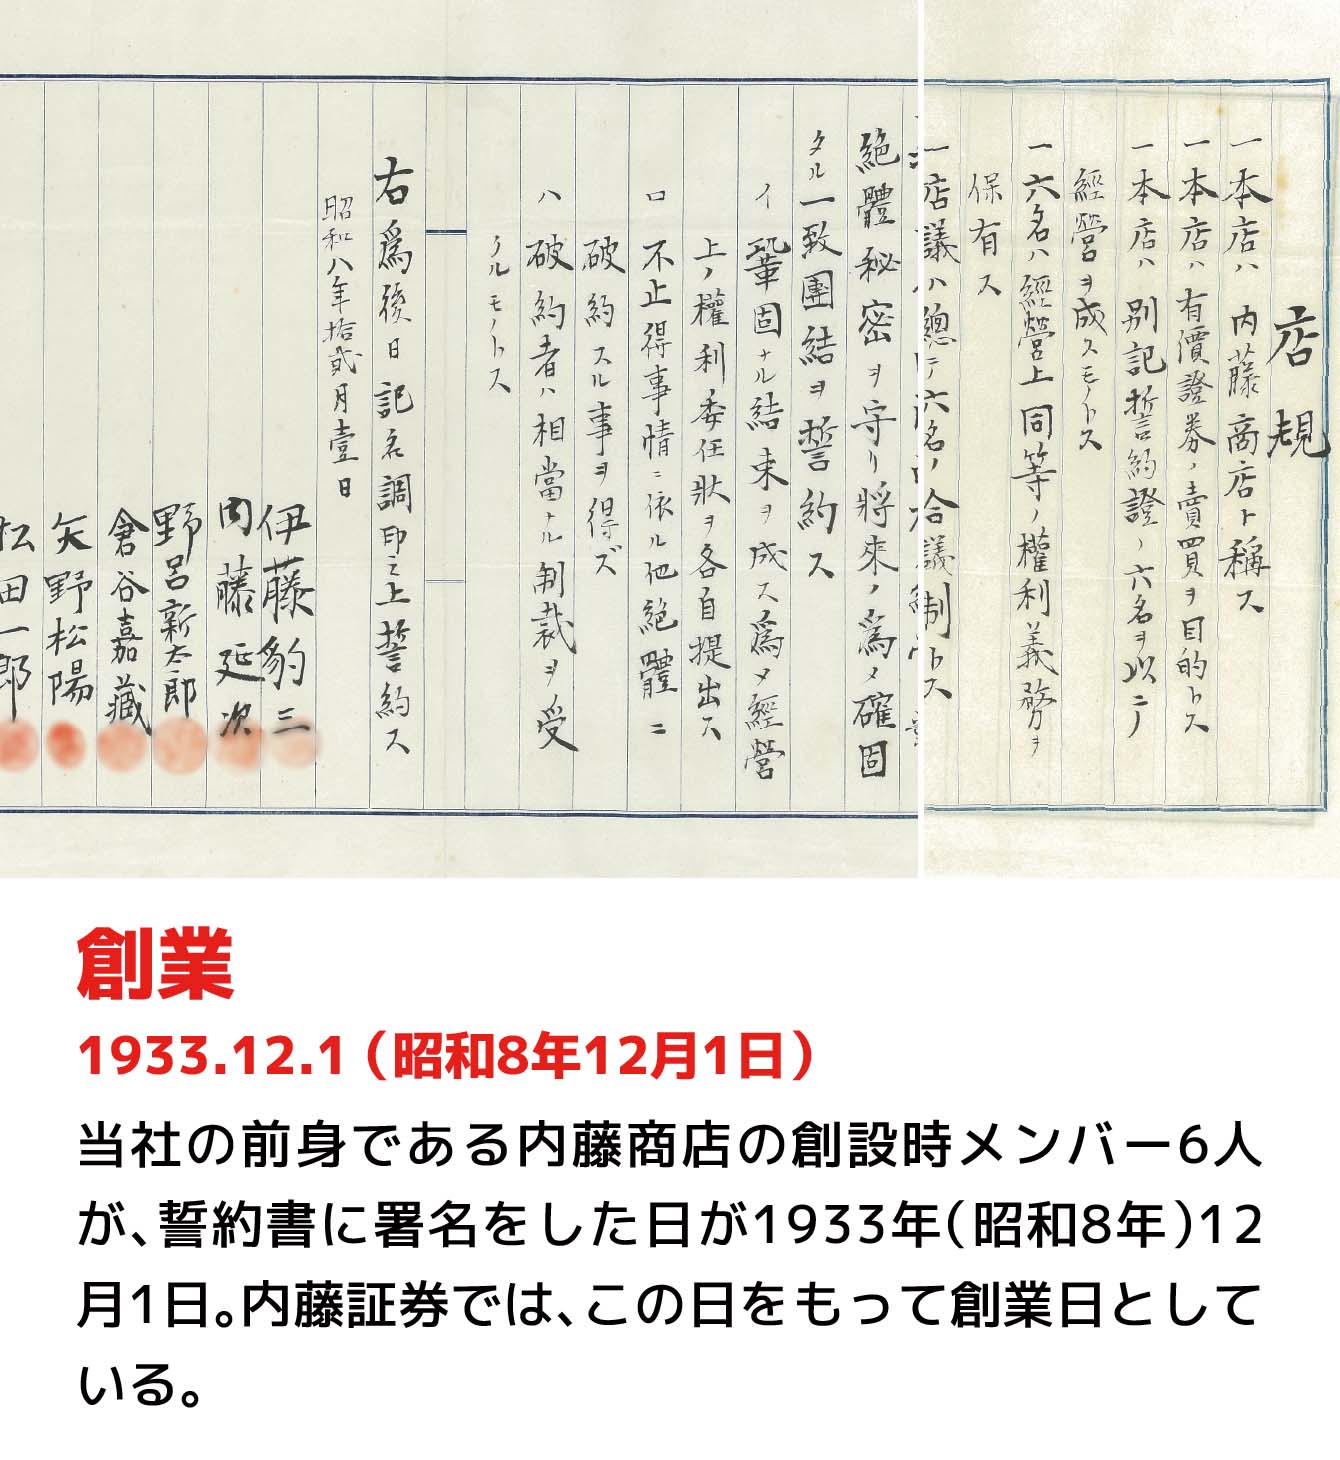 店規
一本店ハ内藤商店ト稱ス
一本店ハ有價證券ノ賣買ヲ目的トス
一本店ハ別記誓約證ノ六名ヲ以ニノ
經營ヲ成スモノトス
一六名ハ經營上同等ノ權利義務ヲ
保有ス
一店議ハ總テ六名ノ合議制トス
絶體秘密ヲ守リ將來ノ爲メ確固
タル一致團結ヲ誓約ス
イ鞏固ナル結束ヲ成ス爲メ經營
上ノ權利委任狀ヲ各自提出ス
ロ不止得事情ニ依ル他絶體ニ
破約スル事ヲ得ズ
ハ破約者ハ相當ナル制裁ヲ受
クルモノトス
右爲後日記名調印之上誓約ス
昭和八年拾貳月壹日
伊藤豹三
内藤延次
野呂新太郎
倉谷嘉藏
矢野松陽
松田一郎
創業
1933.12.1（昭和8年12月1日）
当社の前身である内藤商店の創設時メンバー6人
が、誓約書に署名をした日が1933年（昭和8年）12
月1日。内藤証券では、この日をもって創業日として
いる。